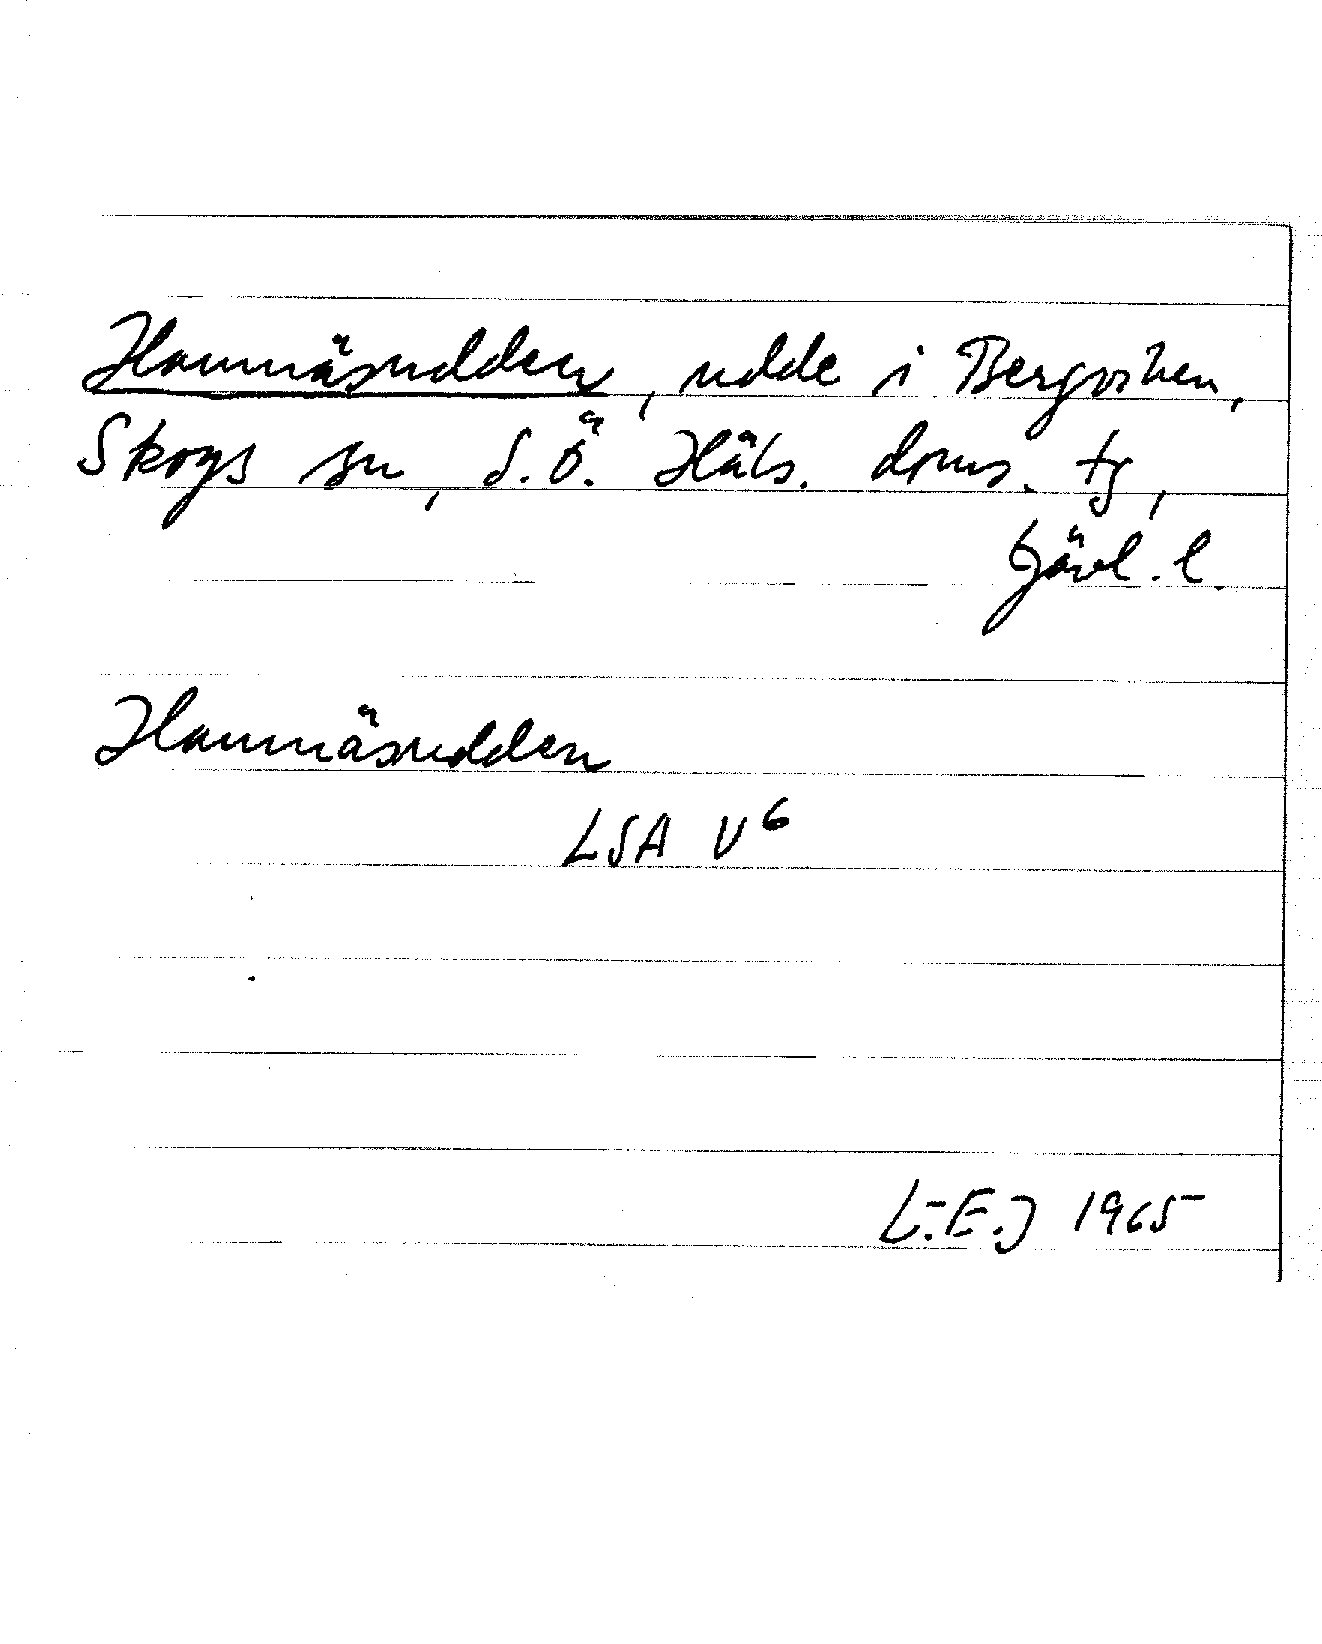 Hamnäsudden, udde i Bergviken,
Skogs sn, S.Ö. Häls. doms. tg,
Gävl. l.
Hamnäsudden
LSA V6
L.-E.J 1965